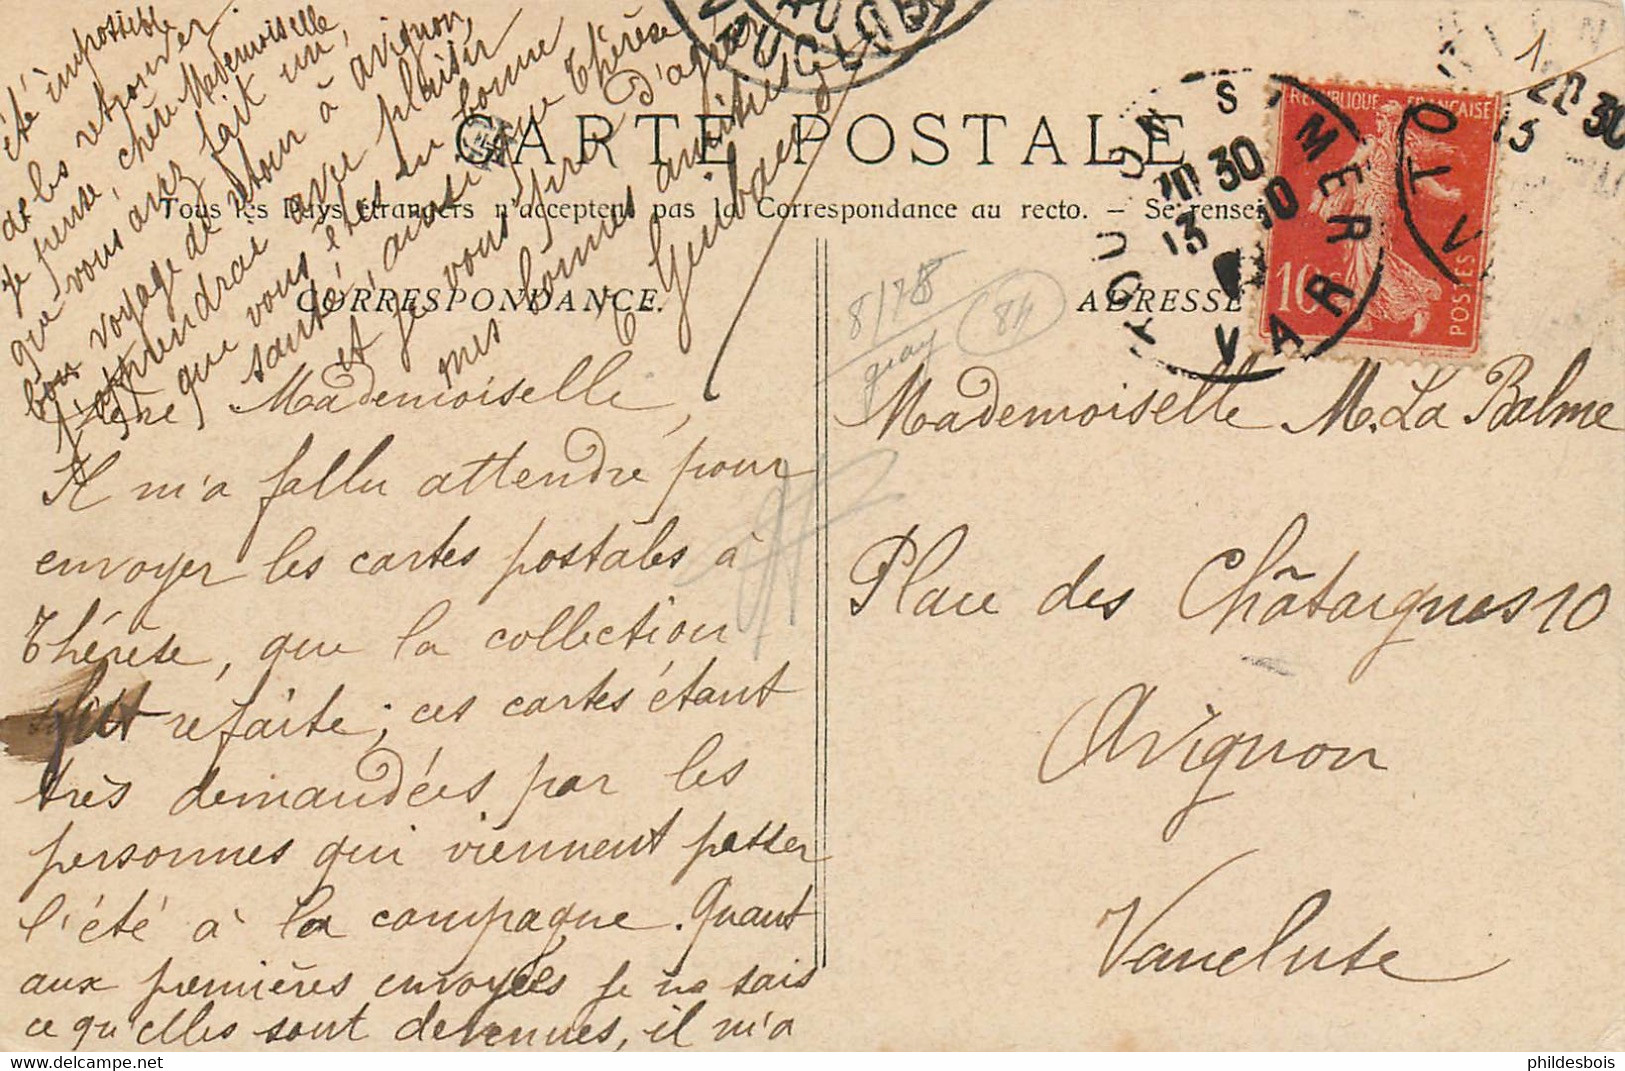 CARTE POSTALE
Tous les Pays étrangers n'acceptent pas la Correspondance au recto. – Se rensei
CORRESPONDANCE.
ADRESSE
Chère Mademoiselle,
Il m'a fallu attendre pour
envoyer les cartes postales à
Thérèse, que la collection
fût refaite; ces cartes étant
très demandées par les
personnes qui viennent passer
l'été à la campagne. Quant
aux premières envoyées je ne sais
ce qu'elles sont devenues, il m'a
été impossible
de les retrouver.
Je pense, chère Mademoiselle
que vous avez fait un
bon voyage de retour à Avignon,
j'apprendrai avec plaisir
que vous êtes en bonne
santé, ainsi que Thérèse
et je vous prie d'agréer
mes bonnes amitiés
Mademoiselle M. La Balme
Place des Châtaignes 10
Avignon
Vaucluse
REPUBLIQUE FRANÇAISE
10c
POSTES
VAR
30
13 10
8/78
84
phildesbois